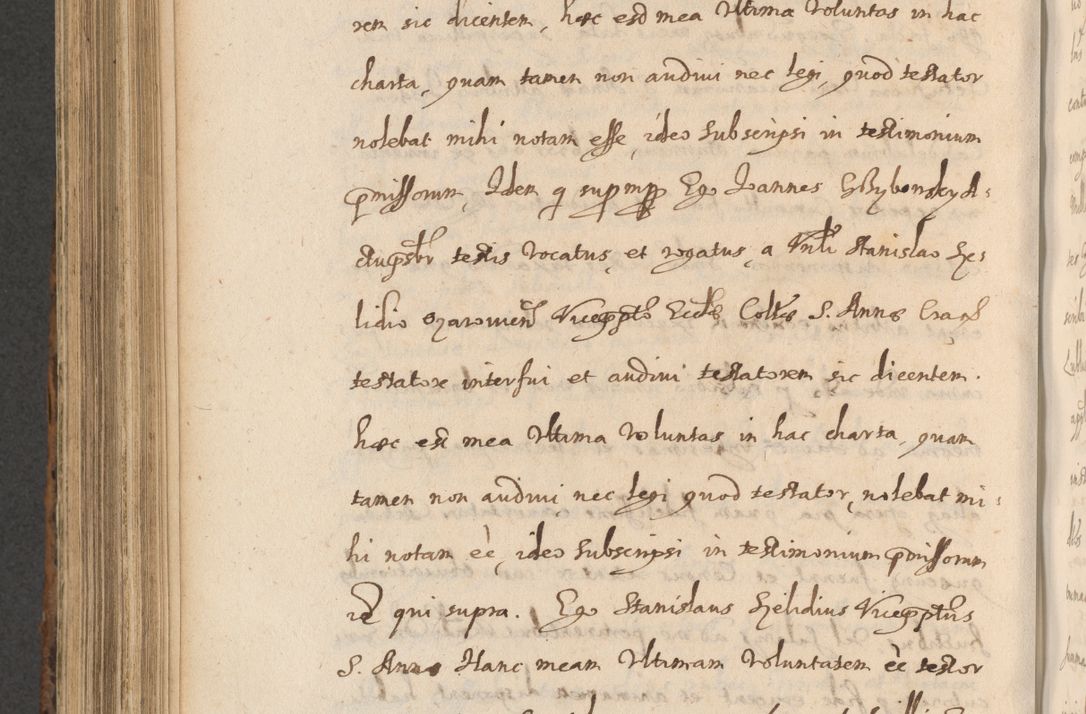 rem sic dicentem, hæc est mea Ultima Voluntas in hac
charta, quam tamen non audivi nec legi, quod testator
nolebat mihi notam esse, ideo subscripsi in testimonium
pmissorum, Idem q supra mpp Ego Joannes
testis Vocatus, et rogatus, a Vnli Stanislao He-
lidio Ozarowien Viceppto Eccle Colltæ S. Annæ Crac
testatore interfui et audivi testatorem sic dicentem.
hæc est mea Ultima Voluntas in hac charta, quam
tamen non audivi nec legi quod testator, nolebat mi-
hi notam eē, ideo subscripsi in testimonium pmissorum
id qui supra. Ego Stanislaus Helidius Viceppts
S. Annæ Hanc meam Ultimam Voluntatem eē testor